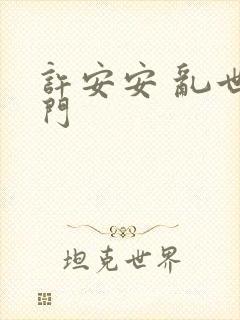 許安安 亂世
門
坦克世界